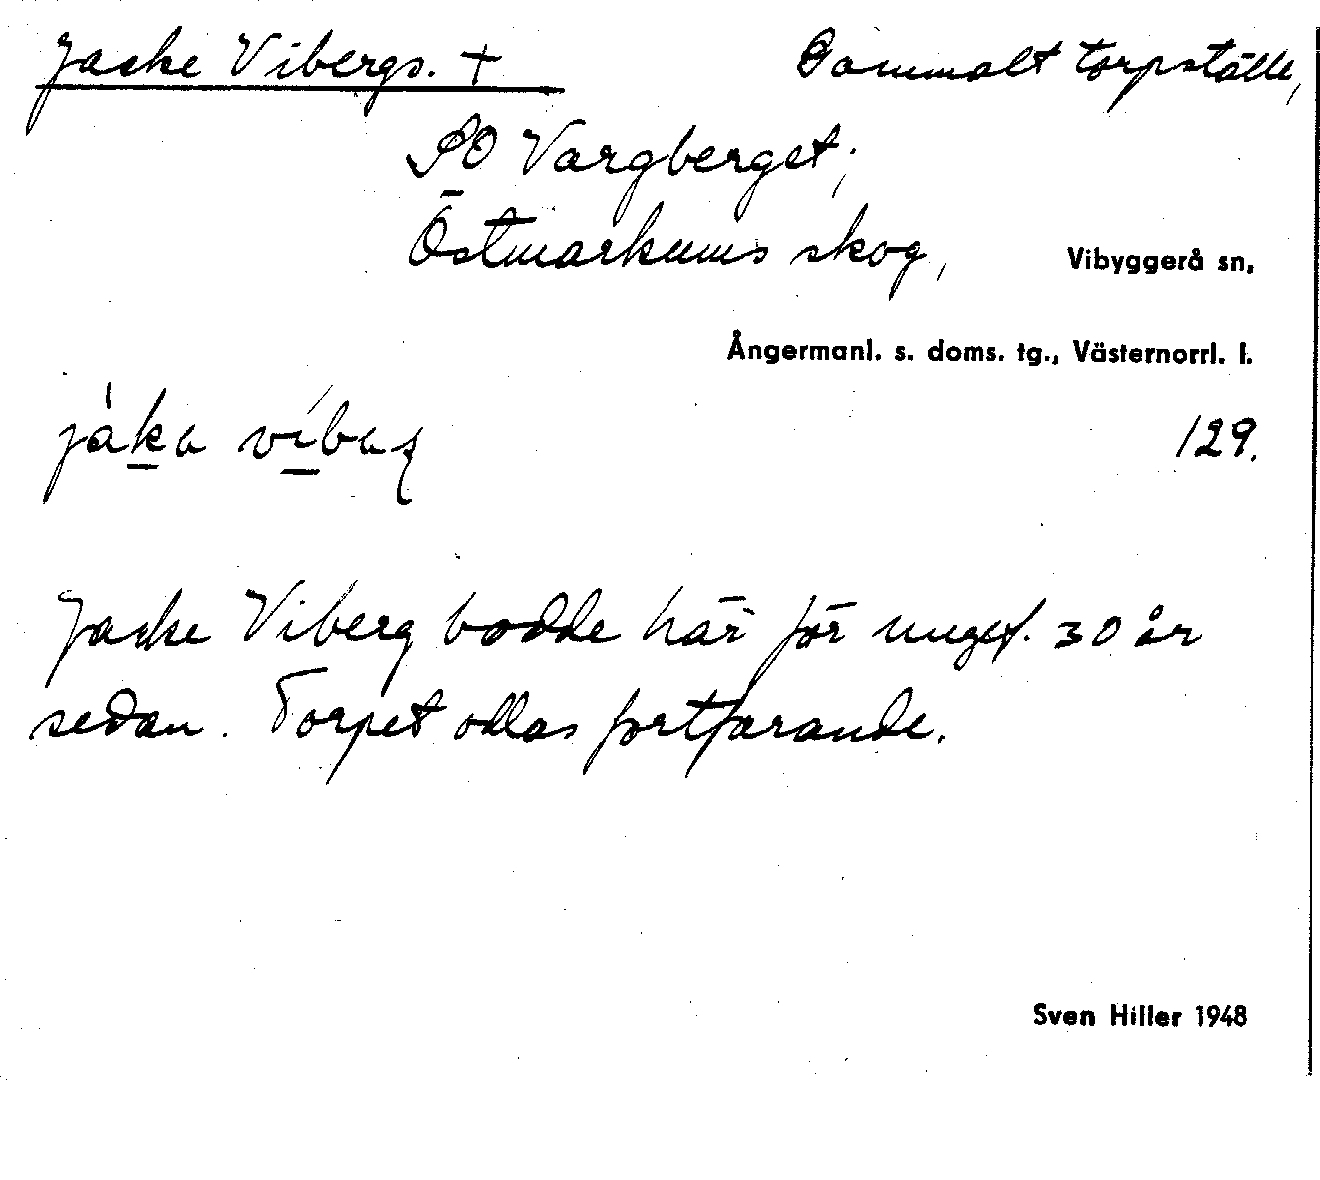 Jacke Vibergs. + Gammalt torpställe,
SO Vargberget;
Östmarkums skog, Vibyggerå sn,
Ångermanl. s. doms. tg., Västernorrl. l.
129.
Jacke Viberg bodde här för ungef. 30 år
sedan. Torpet odlas fortfarande.
Sven Hiller 1948